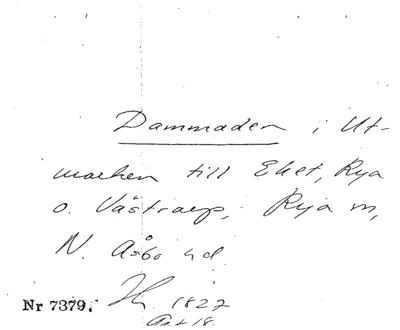 Dammaden i Ut-
marken till Eket, Rya
o. Västraryp, Rya sn,
N. Åsbo hd
Nr 7379. 1827
Akt 18.